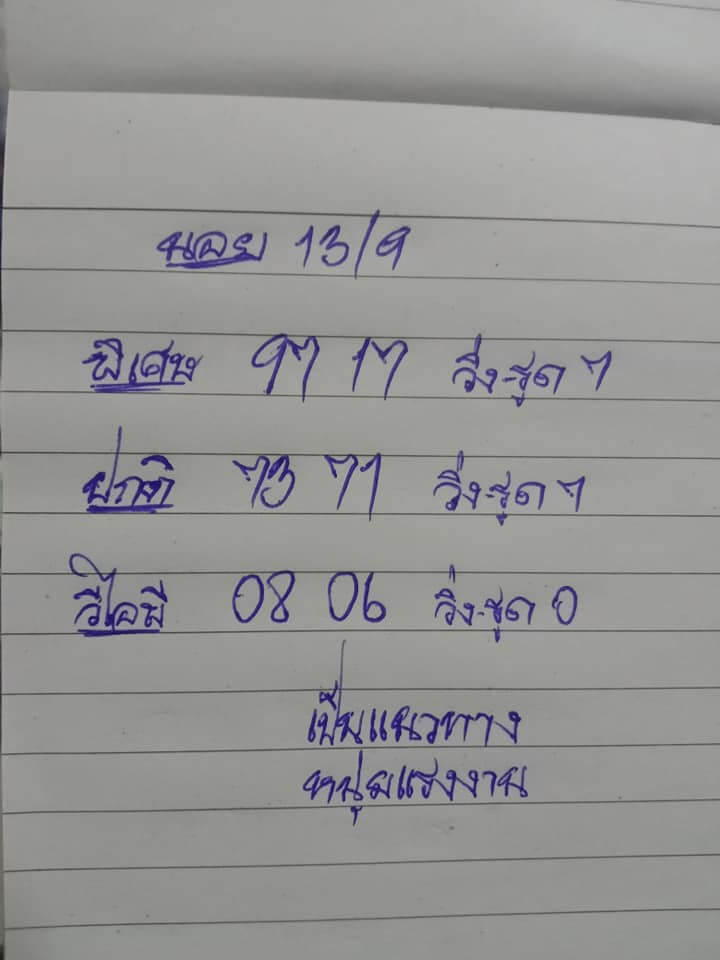 นอย 13/9
พิเศษ 97 17 วิ่ง-รูด 7
ปกติ 73 71 วิ่ง-รูด 7
วีไอพี 08 06 วิ่ง-รูด 0
เป็นแนวทาง
หนุ่มแรงงาน